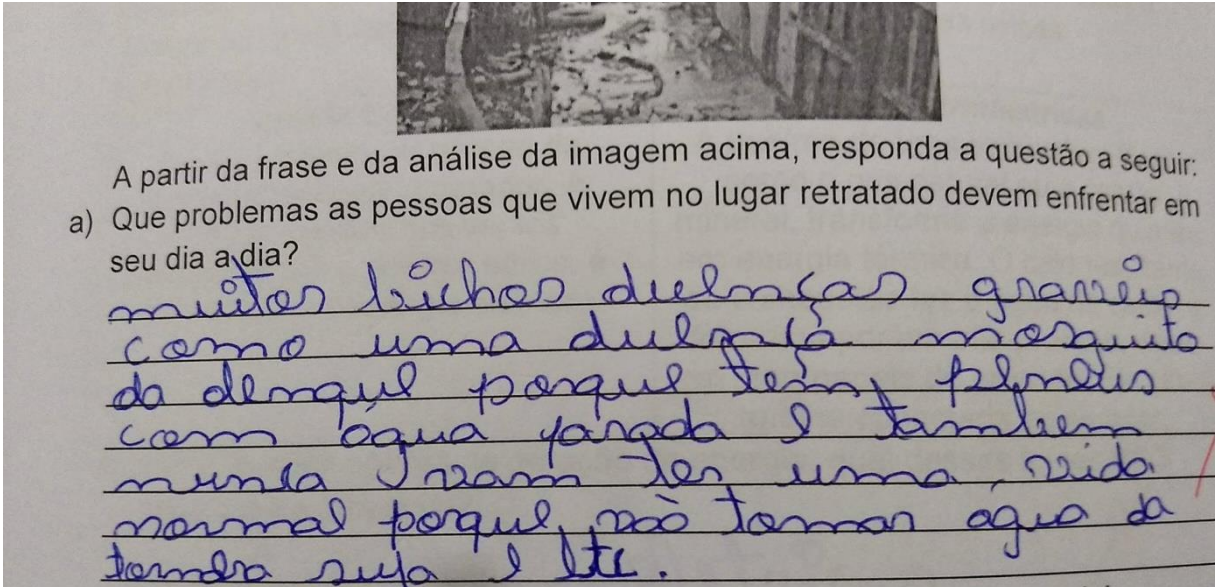 A partir da frase e da análise da imagem acima, responda a questão a seguir:
a) Que problemas as pessoas que vivem no lugar retratado devem enfrentar em
seu dia a dia?
muitos bichos duenças graveis
como uma duença mosquito
da dengue porque tem peneus
com água parada e tambem
nunca vam ter uma vida
normal porque não tomar agua da
tornera suja e etc.